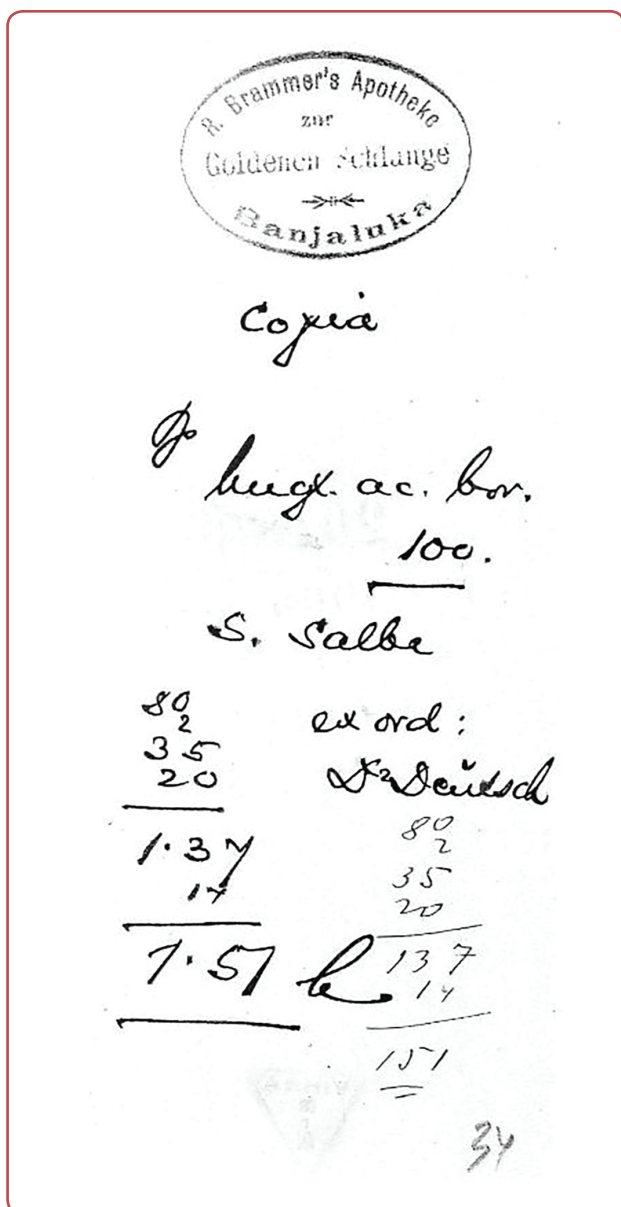 R. Brammer's Apotheke
zur
Goldenen Schlange
Banjaluka
Copia
Rp
Ungt. ac. bor.
100.
S. Salbe
80
2
35
20
1·37
14
1·51
ex ord:
Dr Deutsch
80
2
35
20
137
14
151
34